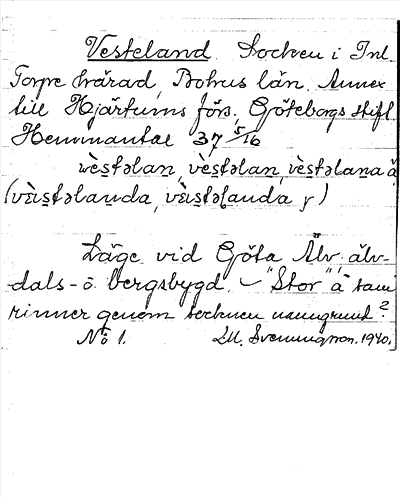 Vesteland. Socken i Inl.
Torpe härad, Bohus län. Annex
till Hjärtums förs., Göteborgs stift.
Hemmantal 37 5/16
vèstəlan, vèstəlan, vèstəlana å̄
(vèistəlanda, vèistəlanda y)
Läge vid Göta Älv. älv-
dals- o. bergsbygd. "Stor" å som
rinner genom socknen namngrund?
No 1. M. Svenningson. 1940.